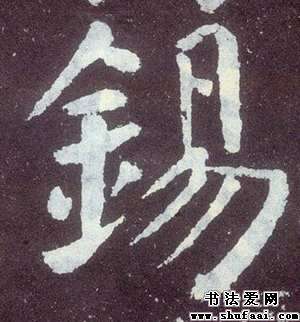 錫
书法爱网
www.shufaai.com